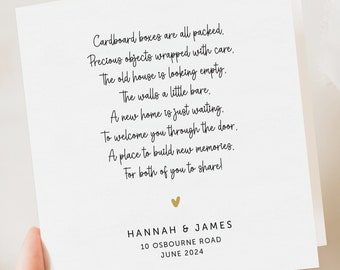 Cardboard boxes are all packed,
Precious objects wrapped with care,
The old house is looking empty,
The walls a little bare,
A new home is just waiting,
To welcome you through the door,
A place to build new memories,
For both of you to share!
HANNAH & JAMES
10 OSBOURNE ROAD
JUNE 2024